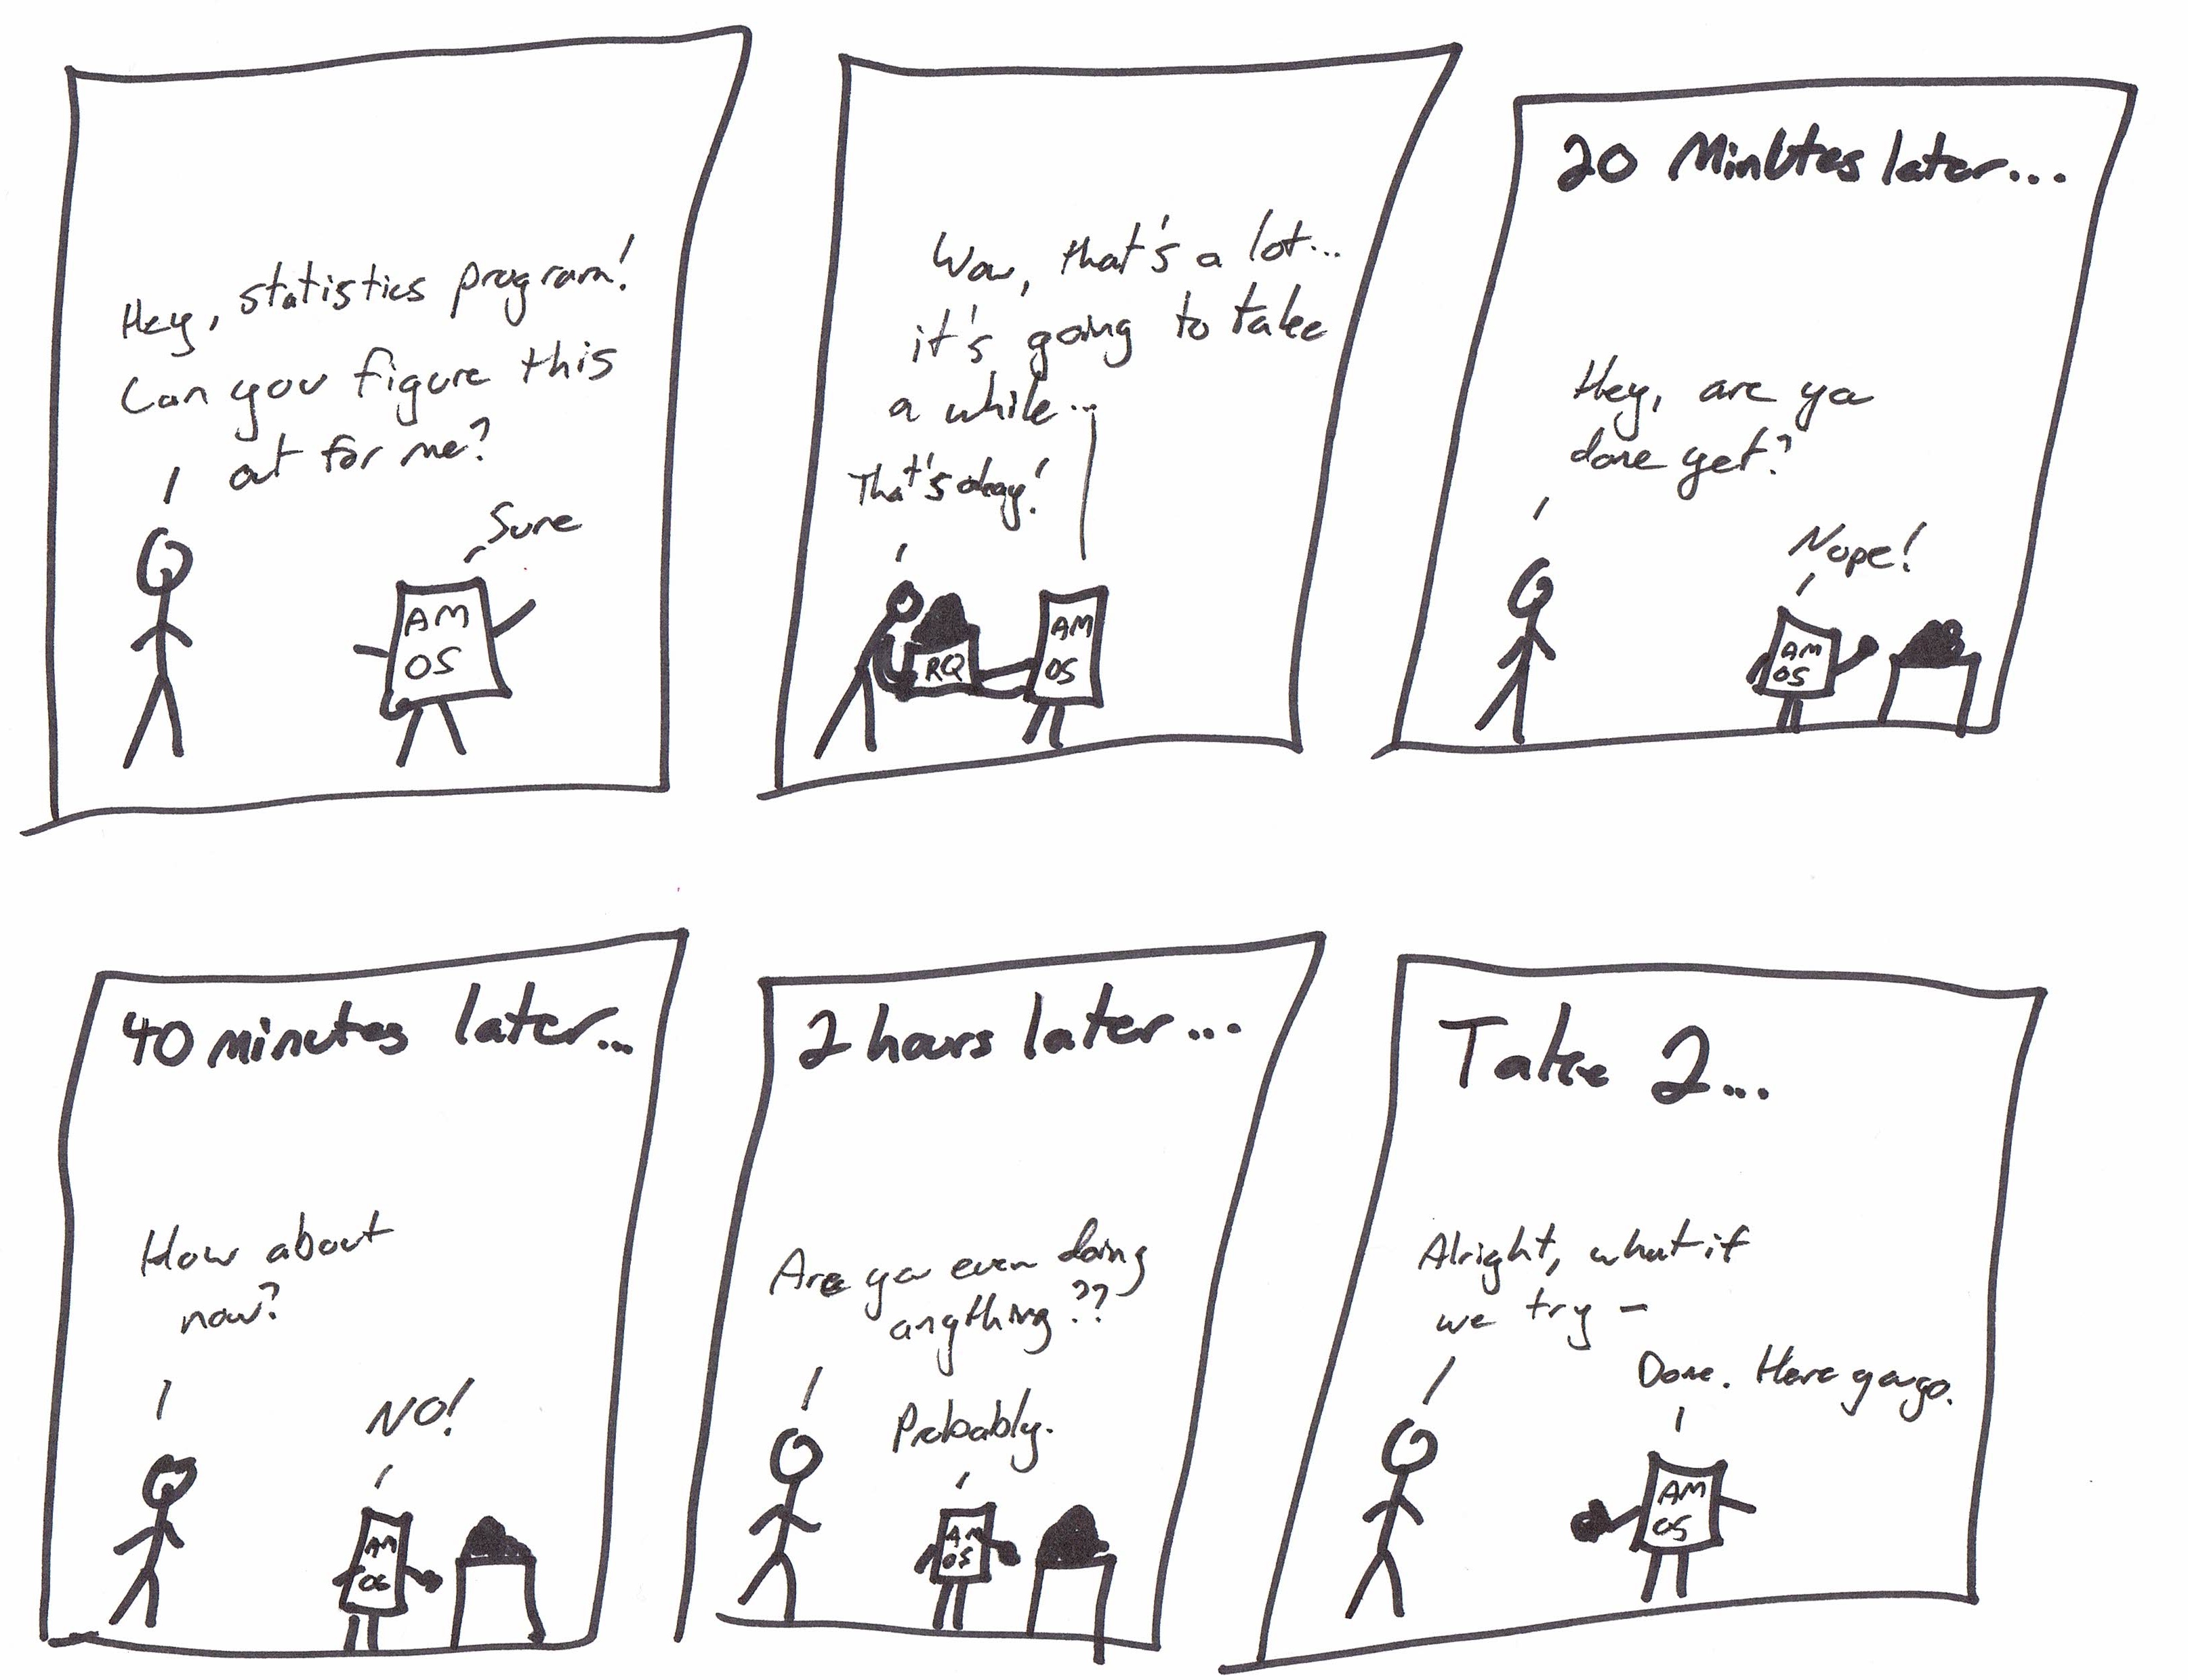 Hey, statistics program!
Can you figure this
out for me?
Sure
AM
OS
Wow, that's a lot...
it's going to take
a while...
That's okay!
RQ
AM
OS
20 Minutes later...
Hey, are ya
done yet?
Nope!
AM
OS
40 minutes later...
How about
now?
NO!
AM
OS
2 hours later...
Are you even doing
anything??
Probably.
AM
OS
Take 2...
Alright, what if
we try -
Done. Here you go.
AM
OS